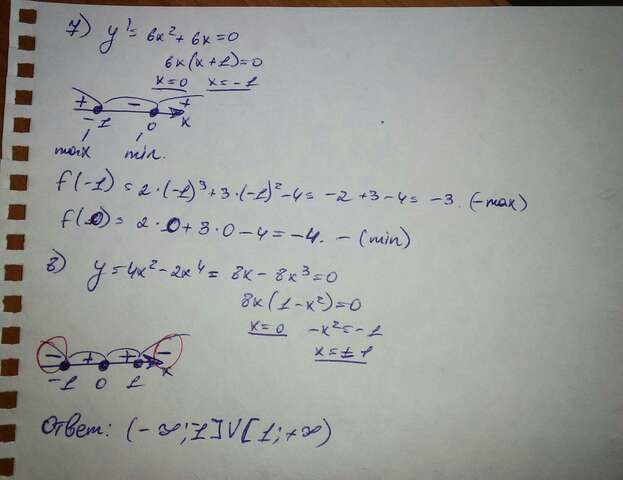 7) y' = 6x² + 6x = 0
6x(x+1) = 0
x=0 x=-1
+ - +
-1 0 x
max min.
f(-1) = 2·(-1)³+3·(-1)²-4 = -2+3-4 = -3. (-max)
f(0) = 2·0+3·0-4 = -4. - (min)
8) y = 4x²-2x⁴ = 8x-8x³=0
8x(1-x²)=0
x=0 -x²=-1
x=±1
- + + -
-1 0 1 x
Ответ: (-∞;1]∪[1;+∞)